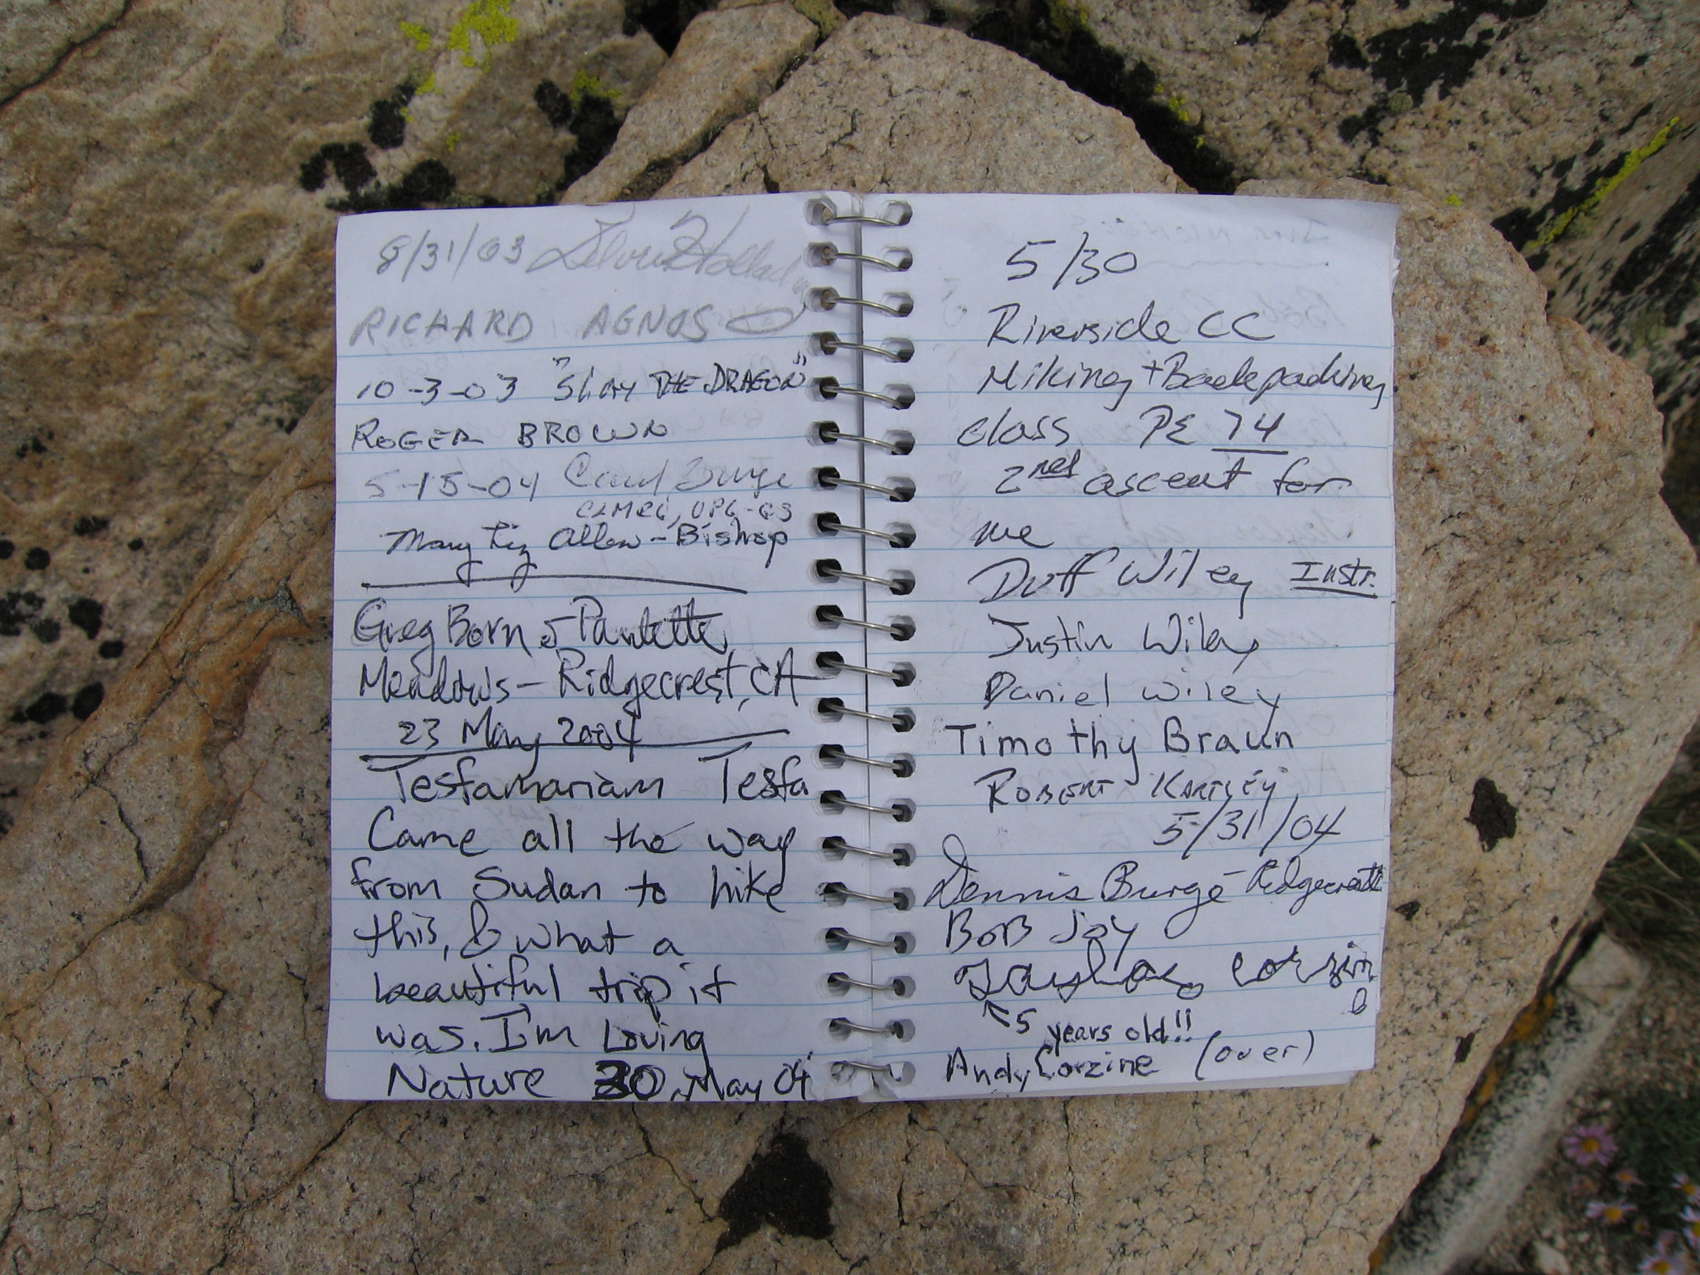 8/31/03
RICHARD AGNOS
10-3-03 "SLAY THE DRAGON"
ROGER BROWN
5-15-04 Carl Burge
CLMRG, OPG-GS
Mary Liz Allen - Bishop
Greg Born & Paulette
Meadows - Ridgecrest, CA
23 May 2004
Testamariam Testa
Came all the way
from Sudan to hike
this, & what a
beautiful trip it
was. I'm Loving
Nature 30 May 04
5/30
Riverside CC
Hiking + Backpacking
class PE 74
2nd ascent for
me
Duff Wiley Instr.
Justin Wiley
Daniel Wiley
Timothy Braun
ROBERT
5/31/04
Dennis Burge - Ridgecrest
BOB JOY
corzine
5 years old!!
Andy Corzine (over)